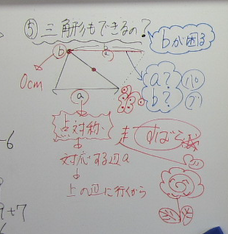 ⑤三角形もできるの？
bが困る
b
b
0cm
a
a？
b？
点対称
対応する辺a
上の辺に行くから
-6
9+7